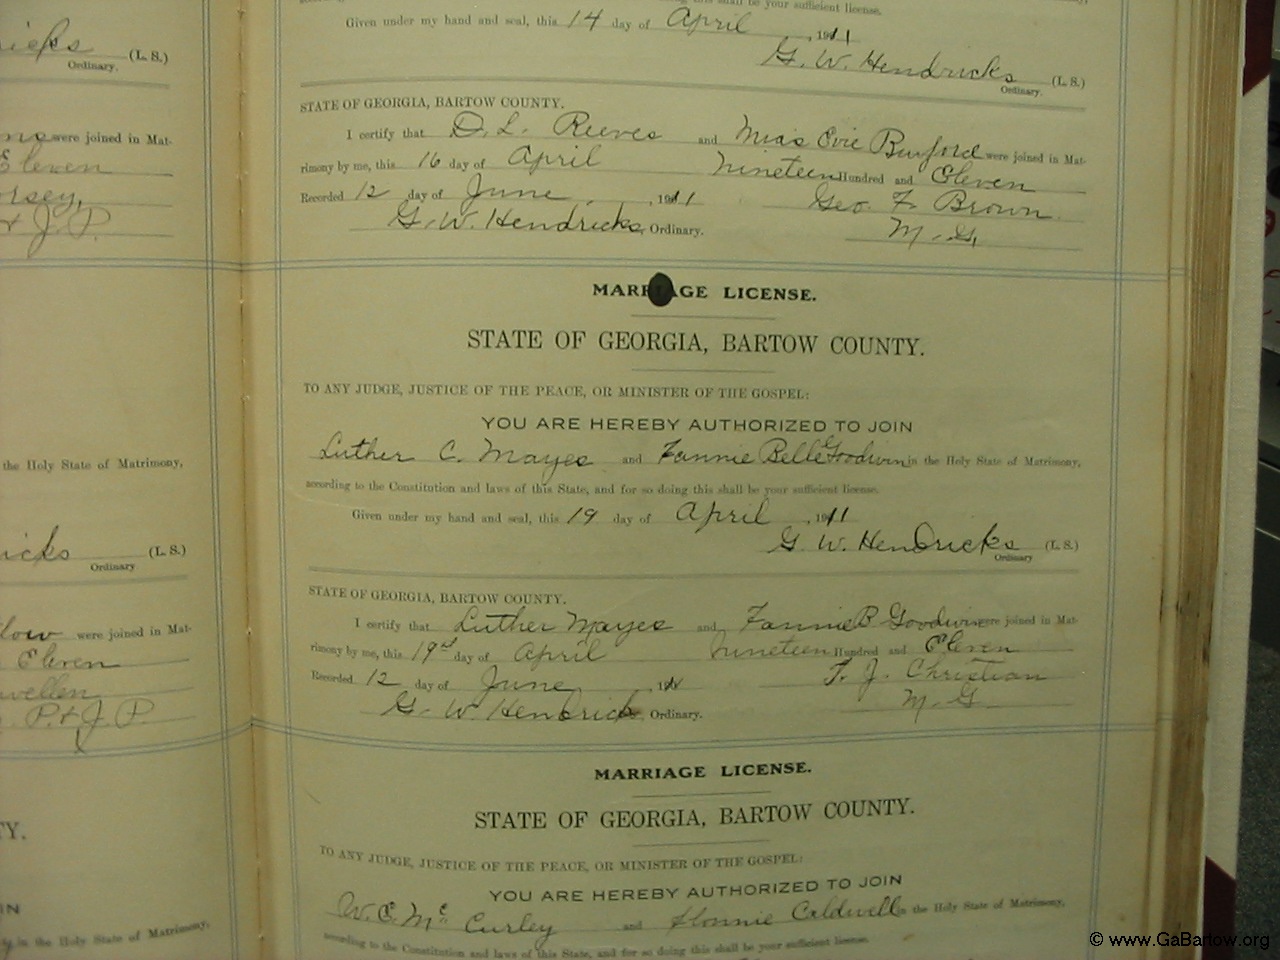 icks (L. S.)
Ordinary.
were joined in Mat-
Eleven
orsey,
& J. P.
the Holy State of Matrimony,
icks (L. S.)
Ordinary
low were joined in Mat-
Eleven
wellen
P. & J. P.
TY.
IN
in the Holy State of Matrimony,
shall be your sufficient license.
Given under my hand and seal, this 14 day of April, 1911
G. W. Hendricks (L. S.)
Ordinary.
STATE OF GEORGIA, BARTOW COUNTY.
I certify that D. L. Reeves and Miss Evie Burford were joined in Mat-
rimony by me, this 16 day of April Nineteen Hundred and Eleven
Recorded 12 day of June, 1911 Geo. F. Brown
G. W. Hendricks, Ordinary. M. G.
MARRIAGE LICENSE.
STATE OF GEORGIA, BARTOW COUNTY.
TO ANY JUDGE, JUSTICE OF THE PEACE, OR MINISTER OF THE GOSPEL:
YOU ARE HEREBY AUTHORIZED TO JOIN
Luther C. Mayes and Fannie Belle Goodwin in the Holy State of Matrimony,
according to the Constitution and laws of this State, and for so doing this shall be your sufficient license.
Given under my hand and seal, this 19 day of April, 1911
G. W. Hendricks (L. S.)
Ordinary
STATE OF GEORGIA, BARTOW COUNTY.
I certify that Luther Mayes and Fannie B Goodwin were joined in Mat-
rimony by me, this 19 day of April Nineteen Hundred and Eleven
Recorded 12 day of June, 1911 T. J. Christian
G. W. Hendricks Ordinary. M. G
MARRIAGE LICENSE.
STATE OF GEORGIA, BARTOW COUNTY.
TO ANY JUDGE, JUSTICE OF THE PEACE, OR MINISTER OF THE GOSPEL:
YOU ARE HEREBY AUTHORIZED TO JOIN
W. E. Mc Curley and Caldwell in the Holy State of Matrimony,
according to the Constitution and laws of this State, and for so doing this shall be your sufficient license.
© www.GaBartow.org